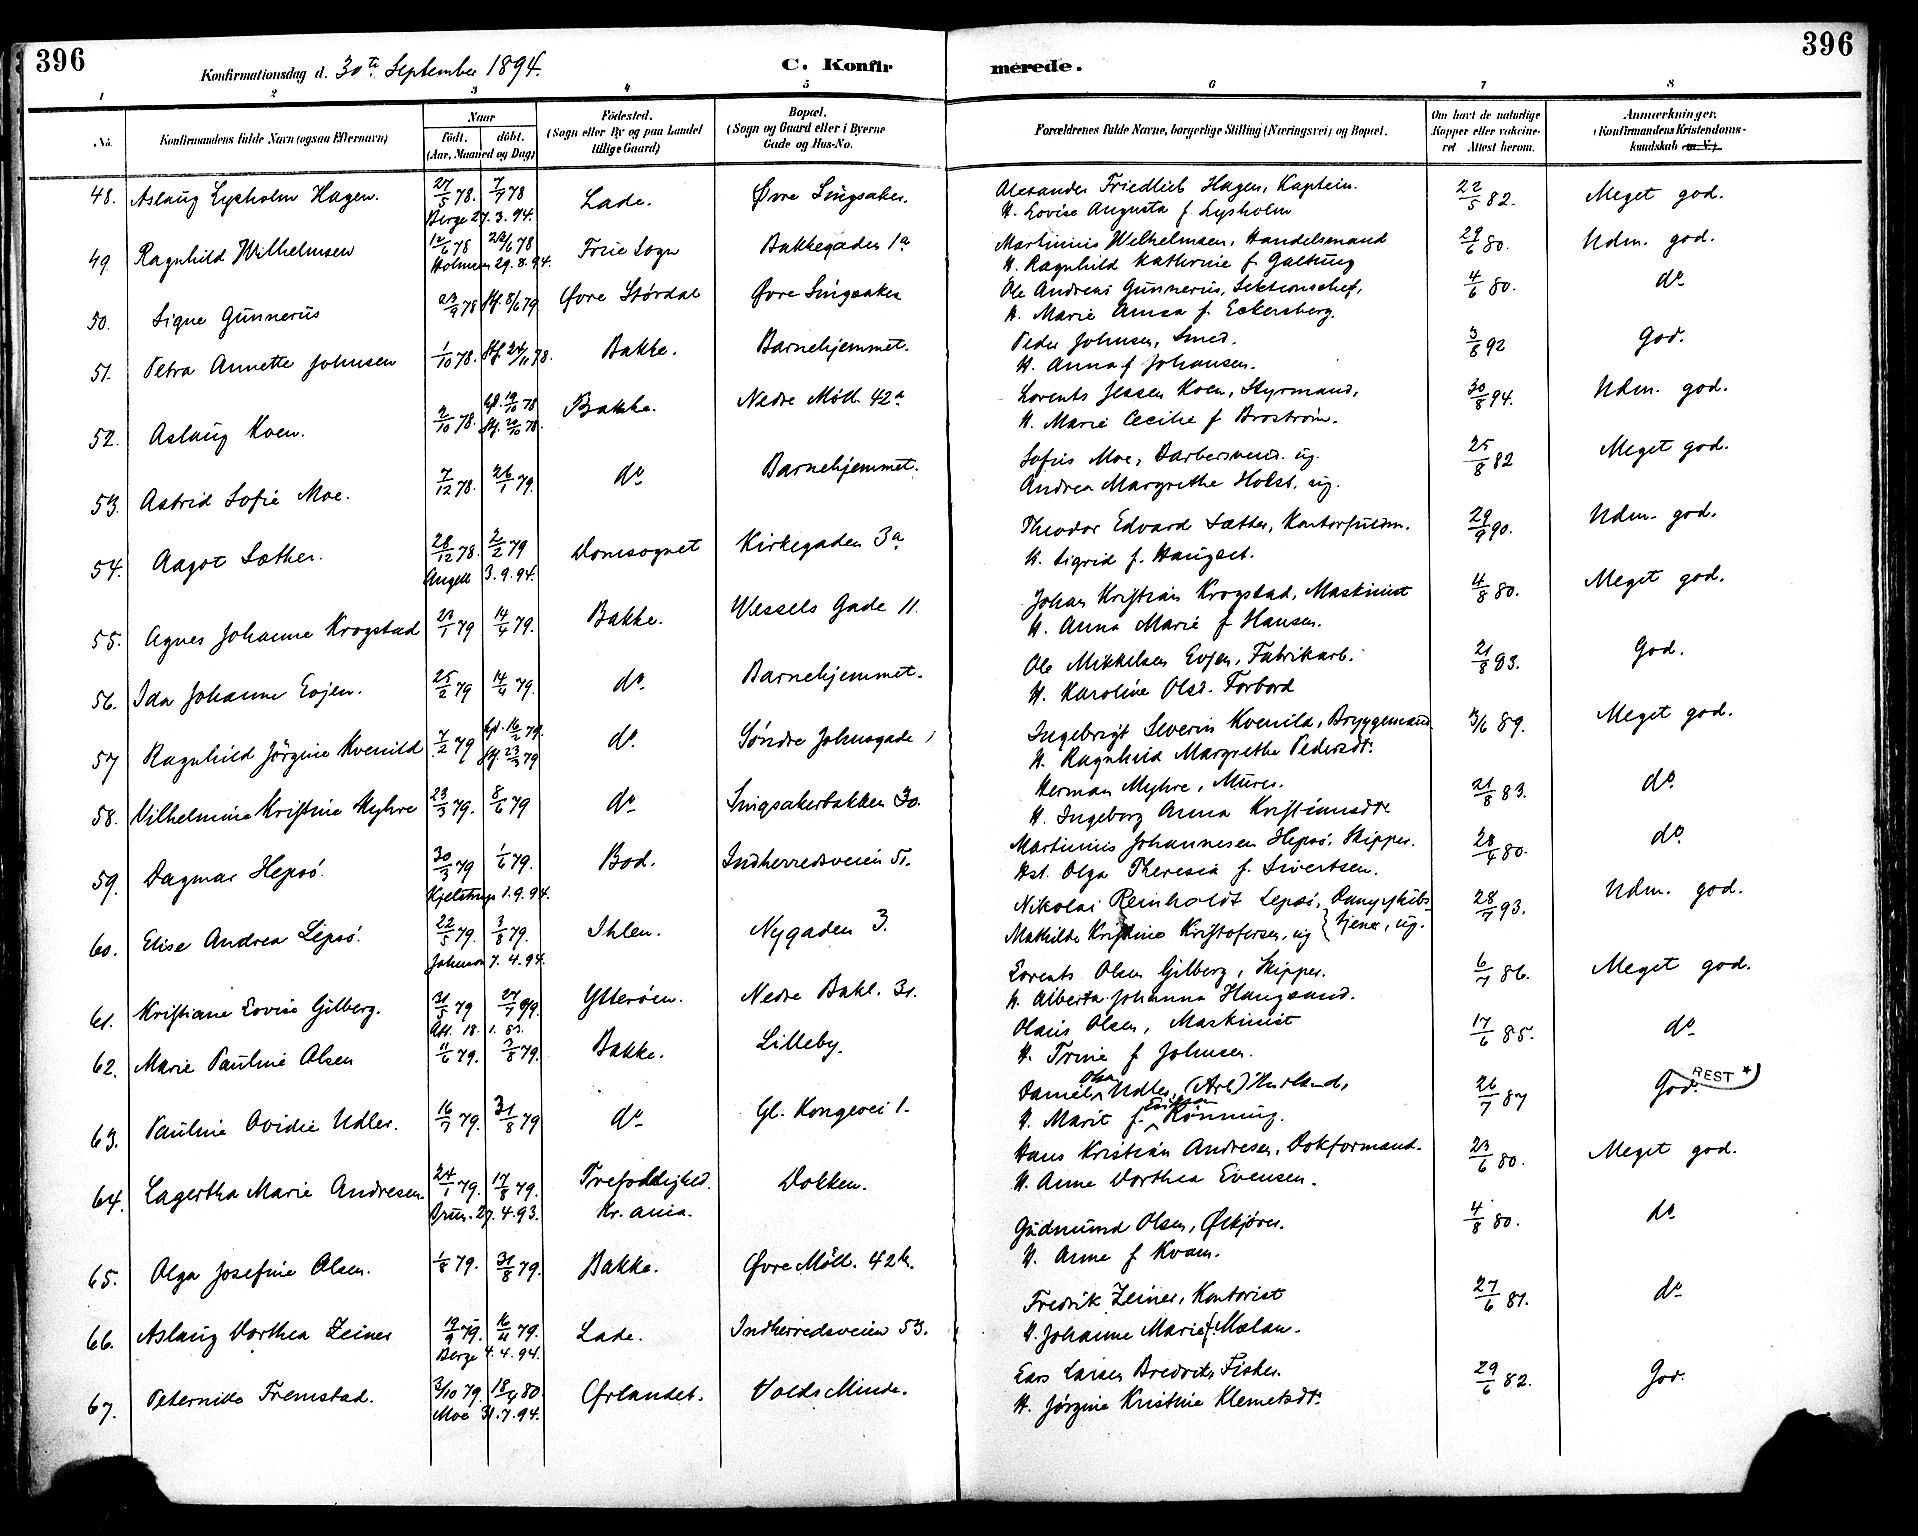 396
Konfirmationsdag d. 30te September 1894.
C. Konfirmerede.
396
1 2 3 4 5 6 7 8
No.
Konfirmandens fulde Navn (ogsaa Efternavn)
Naar
født. døbt.
(Aar, Maaned og Dag)
Fødested.
(Sogn eller By og paa Landet
tillige Gaard)
Bopæl.
(Sogn og Gaard eller i Byerne
Gade og Hus-No.
Forældrenes fulde Navne, borgerlige Stilling (Næringsvei) og Bopæl.
Om havt de naturlige
Kopper eller vakcine-
ret Attest herom.
Anmærkninger.
(Konfirmandens Kristendoms-
kundskab m. V.)
48. Aslaug Lysholm Hagen. 27/5 78. 7/7 78 Lade. Øvre Singsaker. Alexander Friedlieb Hagen, Kaptein. 22/5 82. Meget god.
Berge 27. 3. 94. H. Lovise Augusta f. Lysholm
49. Ragnhild Wilhelmsen 12/6 78 Frie Sogn Bakkegaden 1a Martinius Wilhelmsen, Handelsmand 29/6 80. Udm. god.
Holmsen 29. 8. 94. H. Ragnhild Kathrine f. Galtung
50. Signe Gunnerus 8/6 79 Øvre Størdal Øvre Singsaker Ole Andreas Gunnerus, Sektionschef, 4/6 80. do
H. Marie Anna f. Eckersberg.
51. Petra Annette Johnsen 1/10 78. Stf. 24/11 78. Bakke. Barnehjemmet. Peder Johnsen, Smed. 3/8 92 God.
H. Anna f Johansen.
52. Aslaug Koen. 2/10 78. Bakke. Nedre Møll. 42a Lorents Jessen Koen, Styrmand, 30/8 94. Udm. god.
H. Marie Cecilie f Brostrøm.
53. Astrid Sofie Moe. 7/12 78. 26/1 79. do Barnehjemmet. Sofus Moe, Barbersvend. ug. 25/8 82 Meget god.
Andrea Margrethe Holst. ug.
54. Aagot Sæther. 28/12 78. 2/2 79 Domsognet Kirkegaden 3a Theodor Edvard Sæther, Kontorfuldm. 29/9 90. Udm. god.
Angell 3. 9. 94. H. Sigrid f. Haugset.
55. Agnes Johanne Krogstad 14/4 79. Bakke. Wessels Gade 11. Johan Kristian Krogstad, Maskinist 4/8 80. Meget god.
H. Anna Marie f Hansen.
56. Ida Johanne Evjen. 25/2 79 14/4 79. do. Barnehjemmet. Ole Mikkelsen Evjen, Fabrikarb. 21/8 93. God.
H. Karoline Olsd. Forbord
57 Ragnhild Jørgine Kvenild 7/2 79 do. Søndre Johnsgade 1 Ingebrigt Severin Kvenild, Bryggemand. 3/6 89. Meget god.
H. Ragnhild Margrethe Pedersdt.
58. Vilhelmine Kristine Myhre 23/3 79. 8/6 79 do Singsakerbakken 30. Herman Myhre, Murer. 21/8 83. do.
H. Ingeborg Anna Kristiansdt.
59. Dagmar Hepsø. 30/3 79 1/6 79. Bod. Indherredsveien 51. Martinius Johannesen Hepsø, Skipper. 28/4 80. do.
Kjelstrup 1. 9. 94. Hst. Olga Theresia f. Sivertsen.
60. Elise Andrea Lepsø. 22/5 79. 3/8 79. Ihlen. Nygaden 3. Nikolai Reinholdt Lepsø, Dampskibs- 28/7 93. Udm. god.
Johnson 7. 4. 94. Mathilde Kristine Kristofersen, ug } tjener, ug.
61. Kristiane Lovise Gilberg. 31/5 79 27/7 79. Ytterøen. Nedre Bakl. 31. Lorents Olsen Gilberg, Skipper. 6/7 86. Meget god.
Att. 18. 1. 83. H. Alberta Johanna Haugsand.
62. Marie Pauline Olsen 11/6 79. 3/8 79. Bakke. Lilleby. Olaus Olsen, Maskinist 17/6 85. do
H. Trine f Johnsen.
63. Pauline Ovidie Udler. 16/7 79. 31/8 79 do Gl. Kongevei 1. Daniel Olsen Udler, (Arb) Hurland, 26/7 87 God. REST *
H. Marit f. Rønning.
64. Lagertha Marie Andresen 24/1 79. 17/8 79. Trefoldighed. Dokken. Hans Kristian Andresen, Dokformand. 23/6 80. Meget god.
Bruun. 27. 4. 93. Kr. ania. H. Anne Dorthea Evensen.
65. Olga Josefine Olsen. 1/8 79. 31/8 79. Bakke. Øvre Møll. 42b. Gudmund Olsen, Ølkjører. 4/8 80. do
H. Anne f Kvam.
66. Aslaug Dorthea Zeiner 19/9 79. 16/11 79. Lade. Indherredsveien 53. Fredrik Zeiner, Kontorist 27/6 81. do
Berge 4. 4. 94. H. Johanne Marie f. Mælan.
67. Peternille Fremstad. 3/10 79. 18/4 80. Ørlandet. Volds Minde. Lars Larsen Bredvik, Fisker. 29/6 82. God.
Moe 31. 7. 94. H. Jørgine Kristine Klemetsdt.